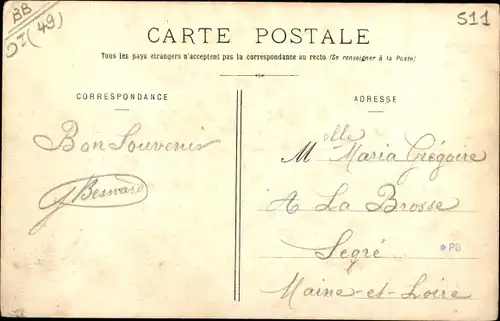 BB
DT (49)
S11
CARTE POSTALE
Tous les pays étrangers n'acceptent pas la correspondance au recto (Se renseigner à la Poste)
CORRESPONDANCE
Bon Souvenir
J Besnard
ADRESSE
Melle Maria Grégoire
A La Brosse
Segré
*PB
Maine-et-Loire